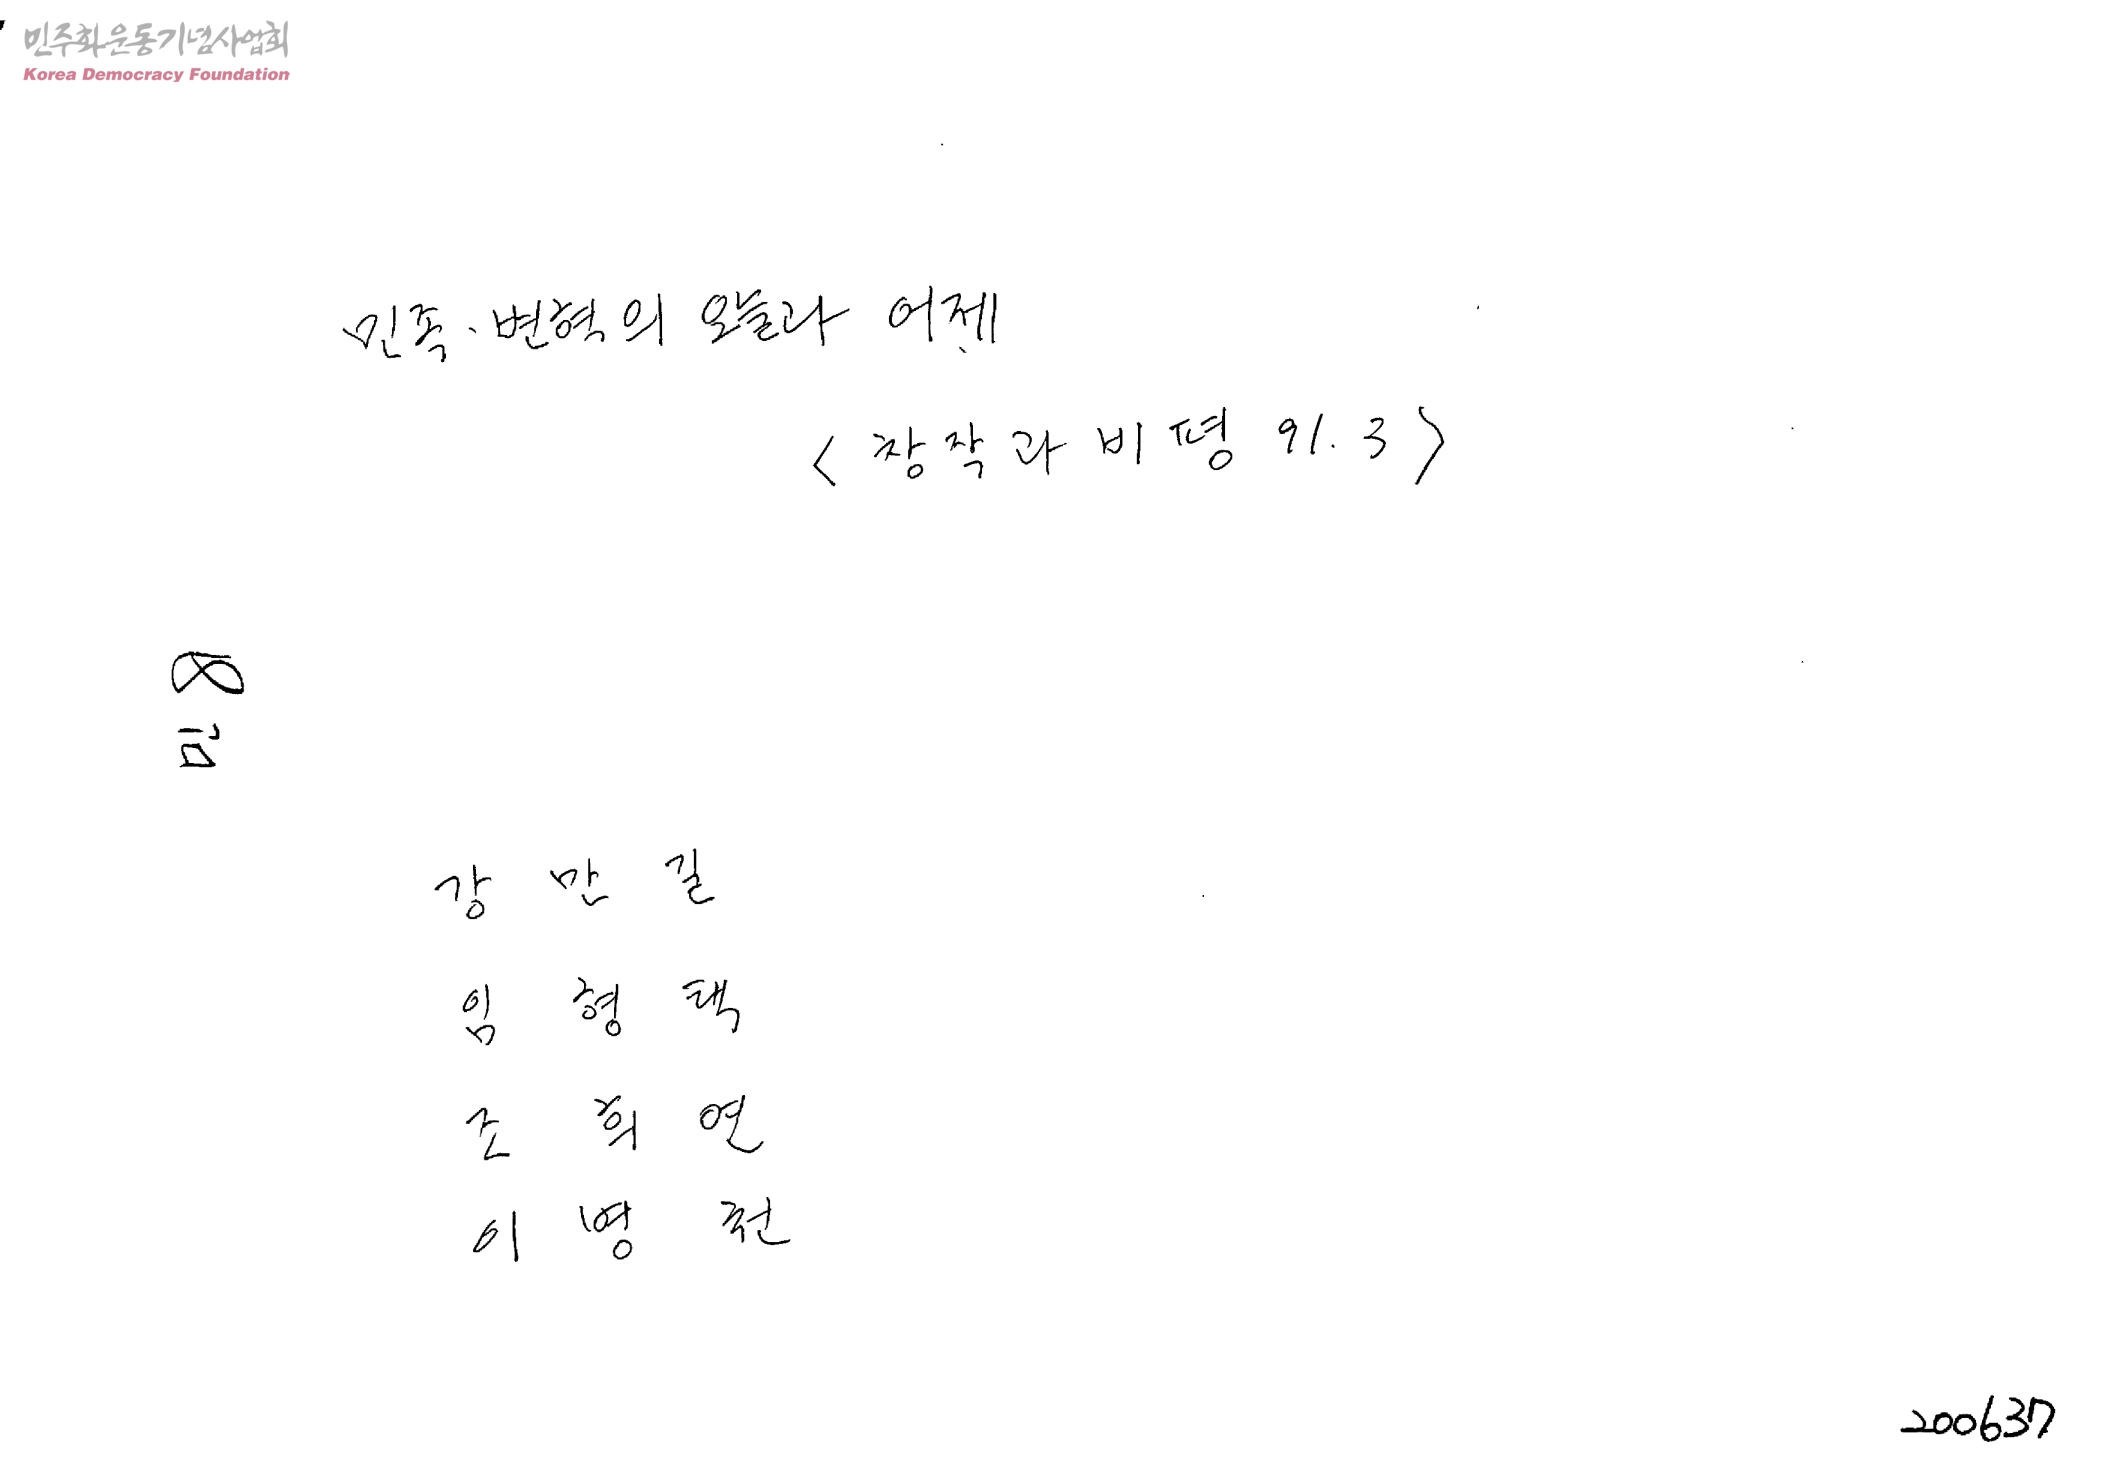 민주화운동기념사업회
Korea Democracy Foundation
민족·변혁의 오늘과 어제
< 창작과 비평 91. 3 >
8
강 만 길
임 형 택
조 희 연
이 병 천
200637